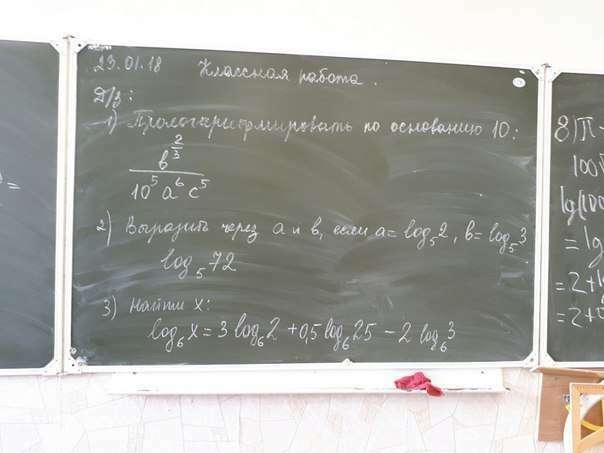 23.01.18 Классная работа.
Д/з:
1) Прологарифмировать по основанию 10:
b^(2/3)
10^5 a^6 c^5
2) Выразить через a и b, если a = log_5 2, b = log_5 3
log_5 72
3) Найти x:
log_6 x = 3 log_6 2 + 0,5 log_6 25 - 2 log_6 3
=
8) П
100
lg(100
= lg
= 2 + lg
= 2 +